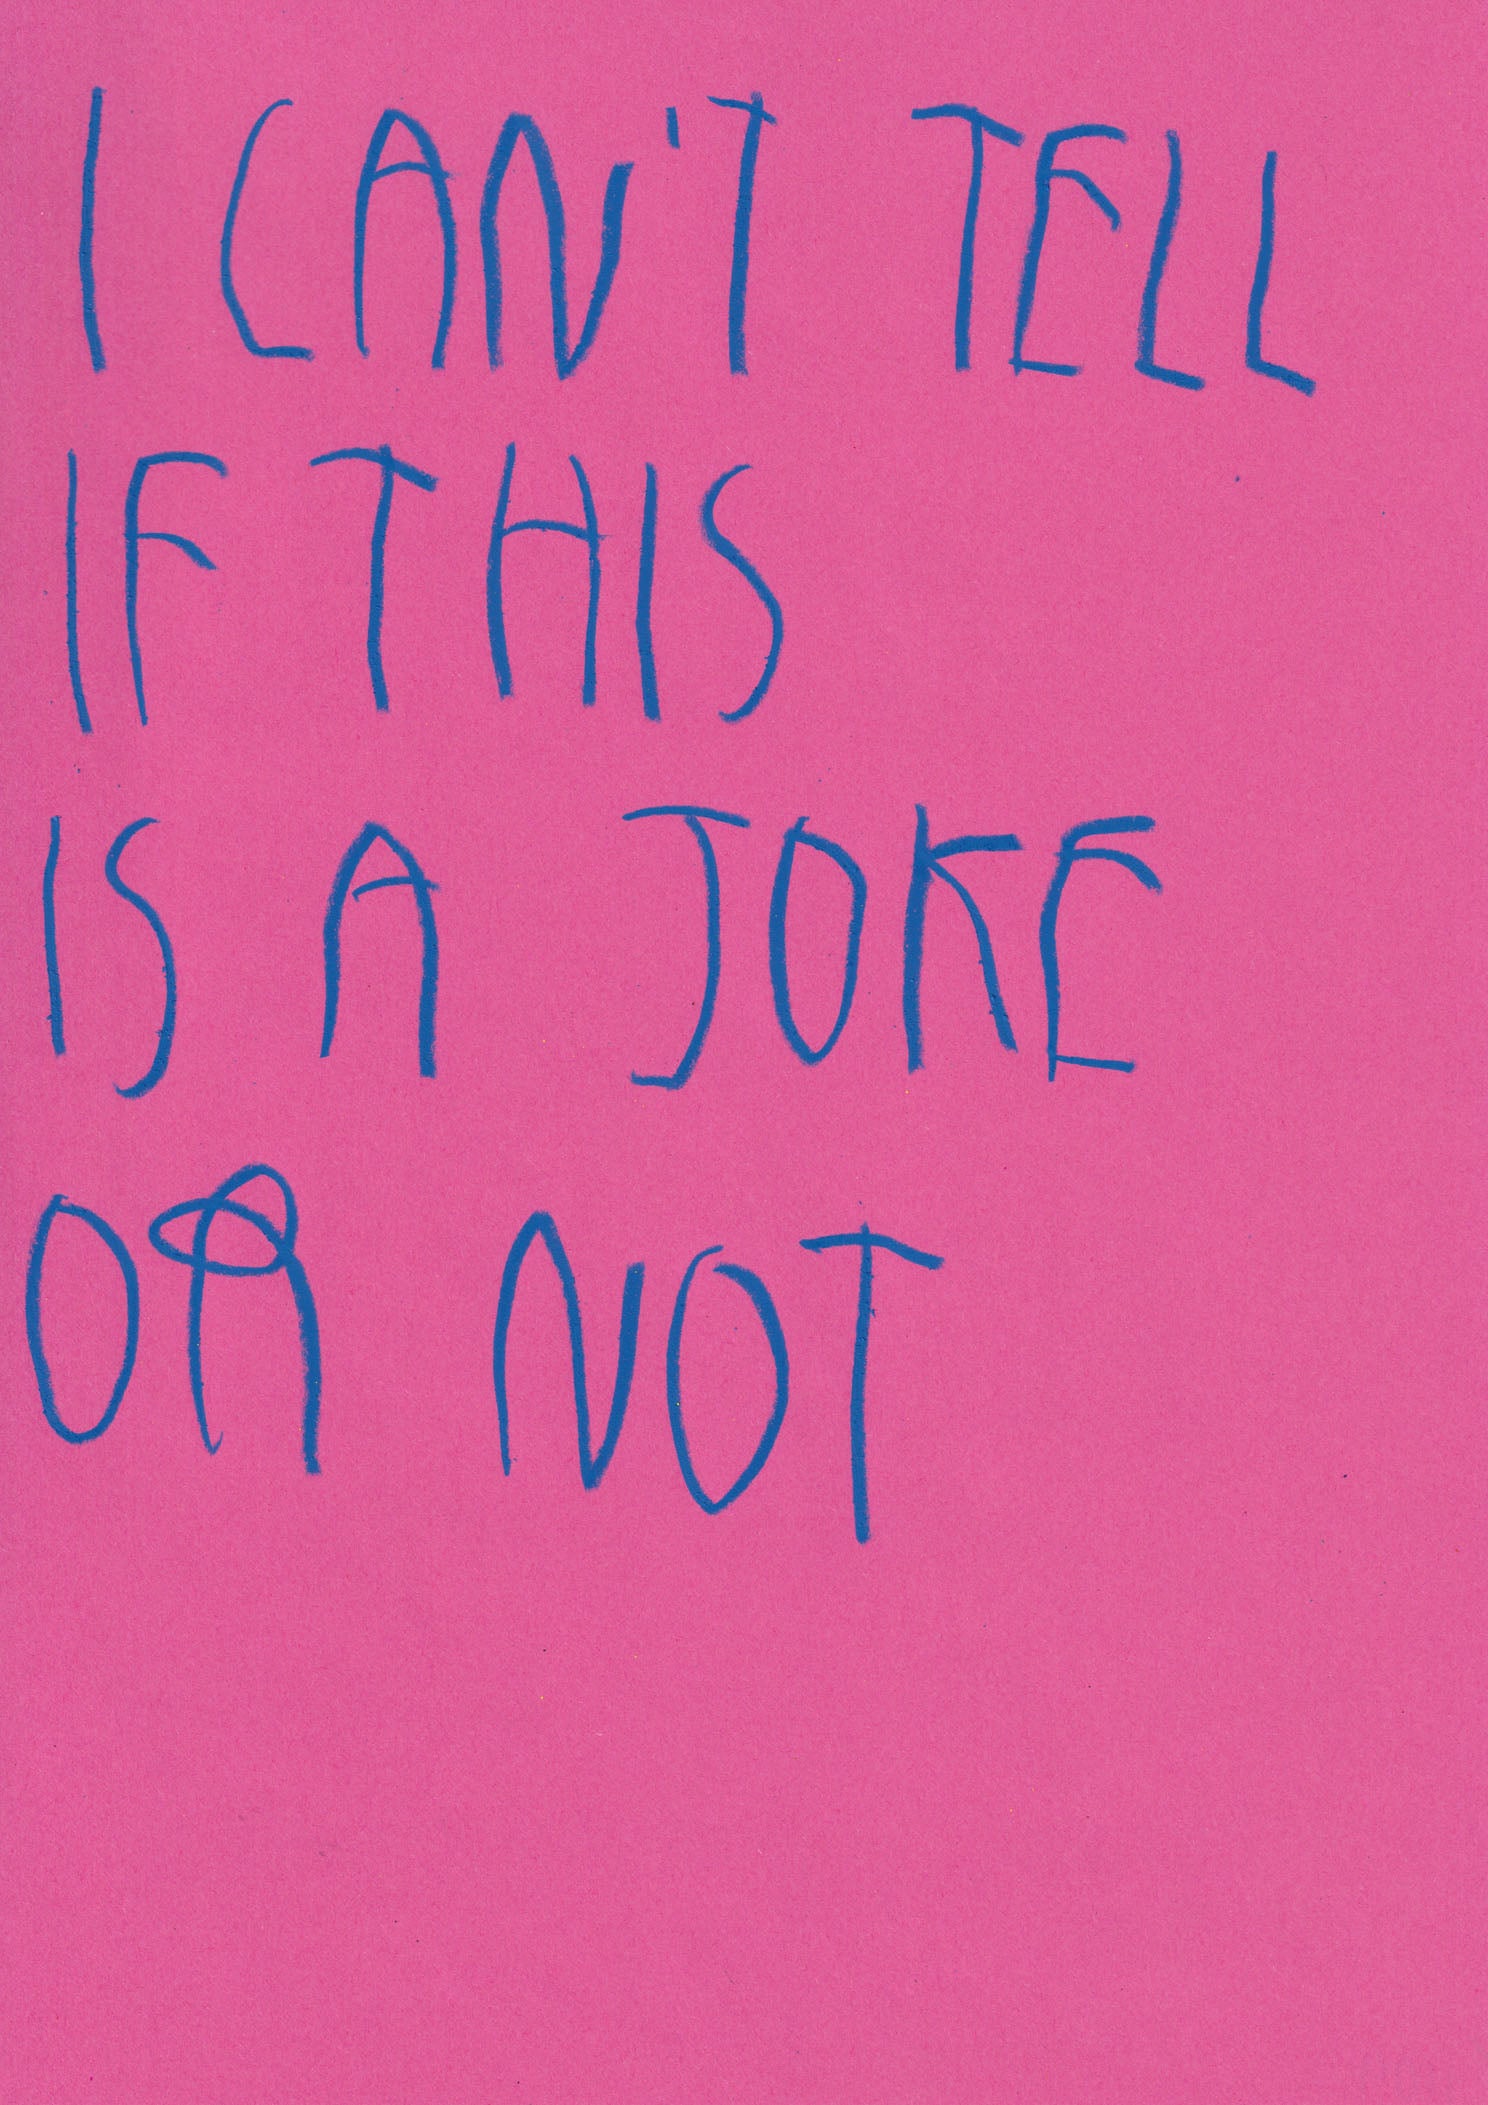 I CAN'T TELL
IF THIS
IS A JOKE
OR NOT